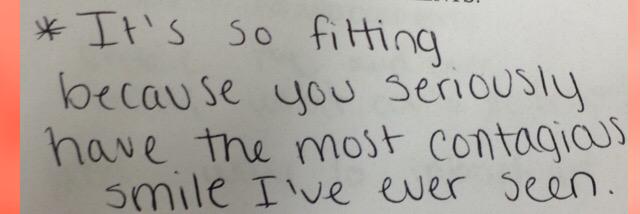 * It's so fitting
because you seriously
have the most contagious
smile I've ever seen.